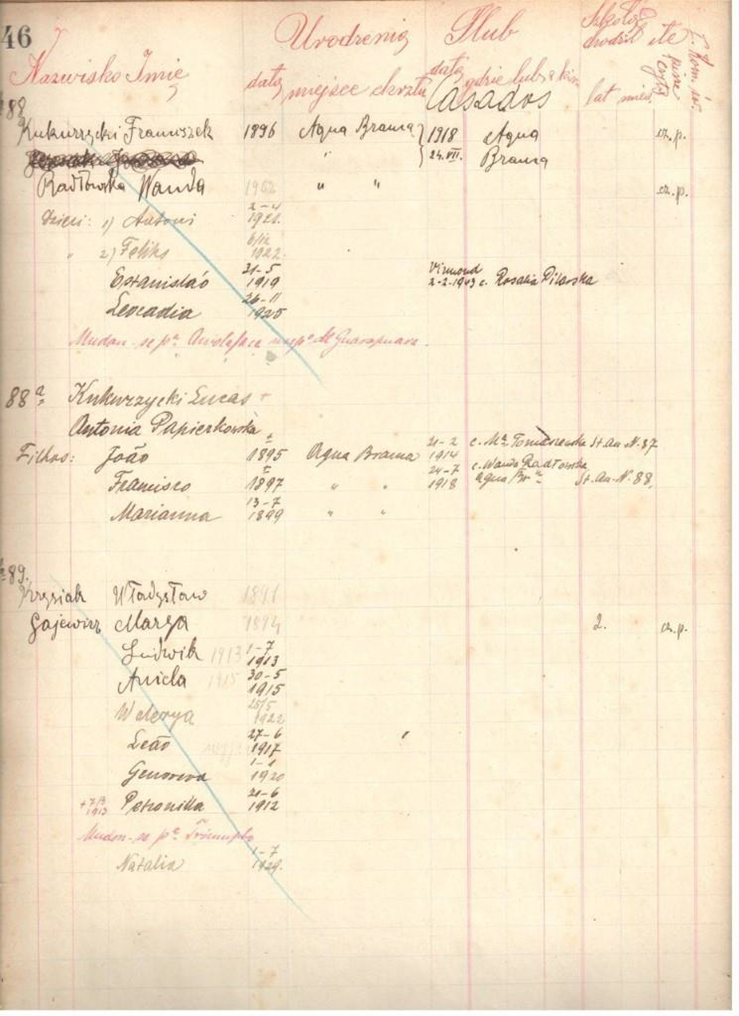 46
Nazwisko Imię
Urodzenia
data miejsce chrztu
Ślub
data gdzie lub z kim
Casados
lat mies.
88
Kukurzycki Franciszek 1896 Agua Branca 1918 Agua cz.p.
24.VII. Branca
Radłowska Wanda 1902 " " cz.p.
Dzieci: 1) Antoni 2-4 1921.
" 2) Feliks 6/12 1922.
Estanisláo 31-5 1919 Virmond 2-2-1943 c. Rosalia Pilarska
Leocadia 26-11 1925
Mudou-se pª de Guarapuava.
88ª, Kukurzycki Lucas +
Antonia Papierkowska
Filhos: João 1895 Agua Branca 21-2 1914 c. Mª Tomaszewska St. An. N. 87
Francisco 1897 " " 24-7 1918 c. Wanda Radłowska Agua Brª St. An. N. 88,
Marianna 13-7 1899 " "
89.
Krysiak Władysław 1891
Gajewicz Marya 1894 2. cz.p.
Ludwik 1913 1-7 1913
Aniela 1915 30-5 1915
Walerya 25/5 1922
Leão 27-6 1917
Genoveva 1-1 1920
+ 1913 Petronilla 21-6 1912
Mudou-se pª Triumpho
Natalia 1-7 1929.